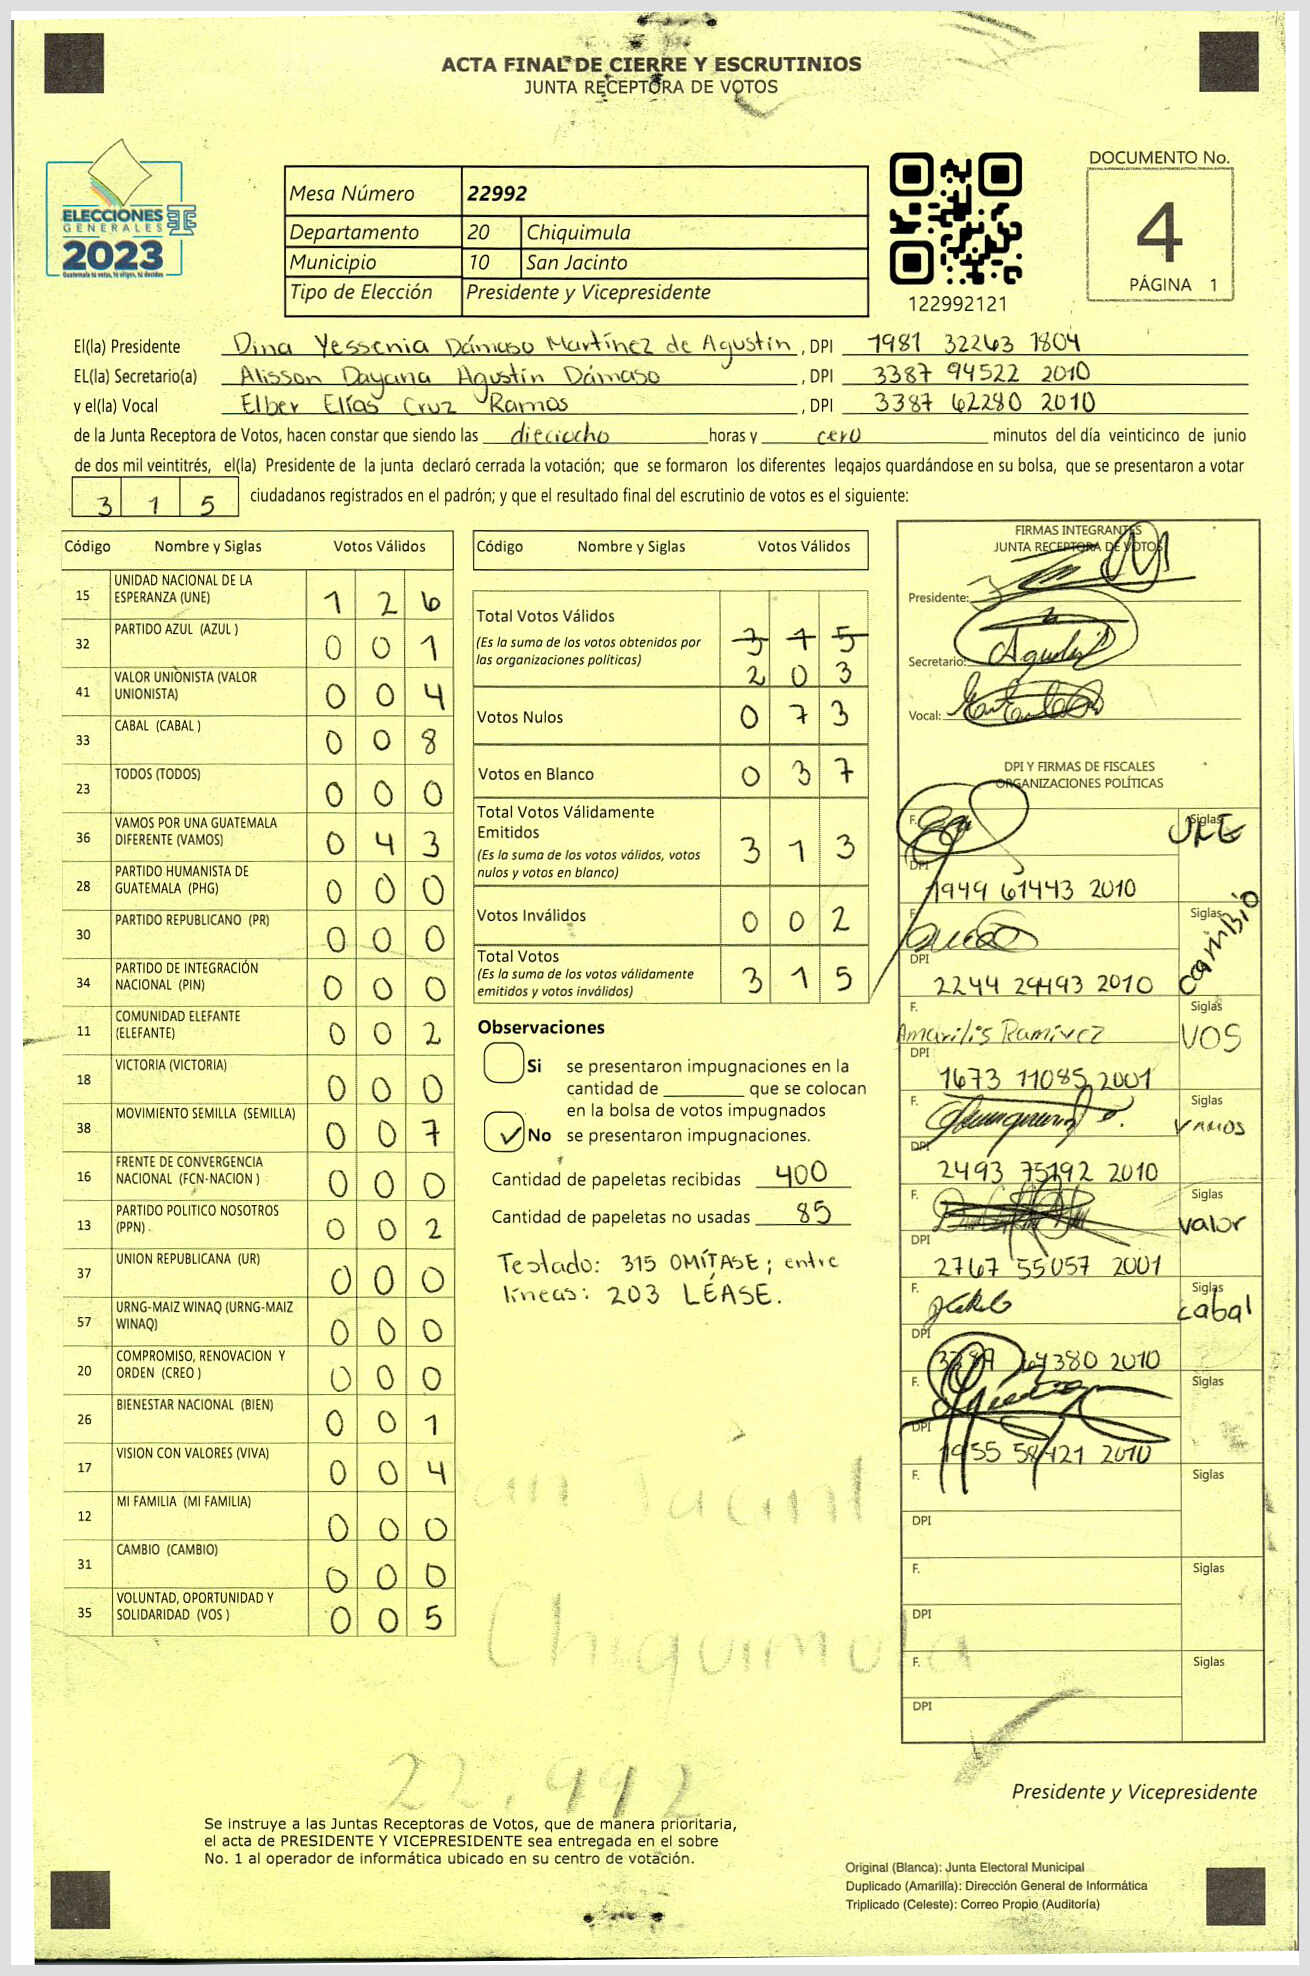 ACTA FINAL DE CIERRE Y ESCRUTINIOS
JUNTA RECEPTORA DE VOTOS
ELECCIONES
GENERALES
2023
Guatemala tú votas, tú eliges, tú decides
Mesa Número 22992
Departamento 20 Chiquimula
Municipio 10 San Jacinto
Tipo de Elección Presidente y Vicepresidente
122992121
DOCUMENTO No.
4
PÁGINA 1
El(la) Presidente Dina Yessenia Dámaso Martínez de Agustín , DPI 1981 32263 1804
EL(la) Secretario(a) Alisson Dayana Agustín Dámaso , DPI 3387 94522 2010
y el(la) Vocal Elber Elías Cruz Ramos , DPI 3387 62280 2010
de la Junta Receptora de Votos, hacen constar que siendo las dieciocho horas y cero minutos del día veinticinco de junio
de dos mil veintitrés, el(la) Presidente de la junta declaró cerrada la votación; que se formaron los diferentes legajos guardándose en su bolsa, que se presentaron a votar
3 1 5 ciudadanos registrados en el padrón; y que el resultado final del escrutinio de votos es el siguiente:
Código Nombre y Siglas Votos Válidos
15 UNIDAD NACIONAL DE LA ESPERANZA (UNE) 1 2 6
32 PARTIDO AZUL (AZUL ) 0 0 1
41 VALOR UNIONISTA (VALOR UNIONISTA) 0 0 4
33 CABAL (CABAL ) 0 0 8
23 TODOS (TODOS) 0 0 0
36 VAMOS POR UNA GUATEMALA DIFERENTE (VAMOS) 0 4 3
28 PARTIDO HUMANISTA DE GUATEMALA (PHG) 0 0 0
30 PARTIDO REPUBLICANO (PR) 0 0 0
34 PARTIDO DE INTEGRACIÓN NACIONAL (PIN) 0 0 0
11 COMUNIDAD ELEFANTE (ELEFANTE) 0 0 2
18 VICTORIA (VICTORIA) 0 0 0
38 MOVIMIENTO SEMILLA (SEMILLA) 0 0 7
16 FRENTE DE CONVERGENCIA NACIONAL (FCN-NACION ) 0 0 0
13 PARTIDO POLITICO NOSOTROS (PPN) 0 0 2
37 UNION REPUBLICANA (UR) 0 0 0
57 URNG-MAIZ WINAQ (URNG-MAIZ WINAQ) 0 0 0
20 COMPROMISO, RENOVACION Y ORDEN (CREO ) 0 0 0
26 BIENESTAR NACIONAL (BIEN) 0 0 1
17 VISION CON VALORES (VIVA) 0 0 4
12 MI FAMILIA (MI FAMILIA) 0 0 0
31 CAMBIO (CAMBIO) 0 0 0
35 VOLUNTAD, OPORTUNIDAD Y SOLIDARIDAD (VOS ) 0 0 5
Código Nombre y Siglas Votos Válidos
Total Votos Válidos 3 1 5
(Es la suma de los votos obtenidos por
las organizaciones políticas) 2 0 3
Votos Nulos 0 7 3
Votos en Blanco 0 3 7
Total Votos Válidamente
Emitidos 3 1 3
(Es la suma de los votos válidos, votos
nulos y votos en blanco)
Votos Inválidos 0 0 2
Total Votos 3 1 5
(Es la suma de los votos válidamente
emitidos y votos inválidos)
Observaciones
Si se presentaron impugnaciones en la
cantidad de ________ que se colocan
en la bolsa de votos impugnados
✓ No se presentaron impugnaciones.
Cantidad de papeletas recibidas 400
Cantidad de papeletas no usadas 85
Testado: 315 OMÍTASE; entre
líneas: 203 LÉASE.
FIRMAS INTEGRANTES
JUNTA RECEPTORA DE VOTOS
Presidente:
Secretario:
Vocal:
DPI Y FIRMAS DE FISCALES
ORGANIZACIONES POLÍTICAS
F. Siglas UNE
DPI 1949 61443 2010
F. Siglas cambio
DPI 2244 29493 2010
F. Amarilis Ramírez Siglas VOS
DPI 1673 11085 2001
F. Siglas VAMOS
DPI 2493 75192 2010
F. Siglas valor
DPI 2767 55057 2001
F. Siglas cabal
DPI 64380 2010
F. Siglas
DPI 1955 58421 2010
F. Siglas
DPI
F. Siglas
DPI
F. Siglas
DPI
San Jacinto
Chiquimula
22,992
Presidente y Vicepresidente
Se instruye a las Juntas Receptoras de Votos, que de manera prioritaria,
el acta de PRESIDENTE Y VICEPRESIDENTE sea entregada en el sobre
No. 1 al operador de informática ubicado en su centro de votación.
Original (Blanca): Junta Electoral Municipal
Duplicado (Amarilla): Dirección General de Informática
Triplicado (Celeste): Correo Propio (Auditoría)